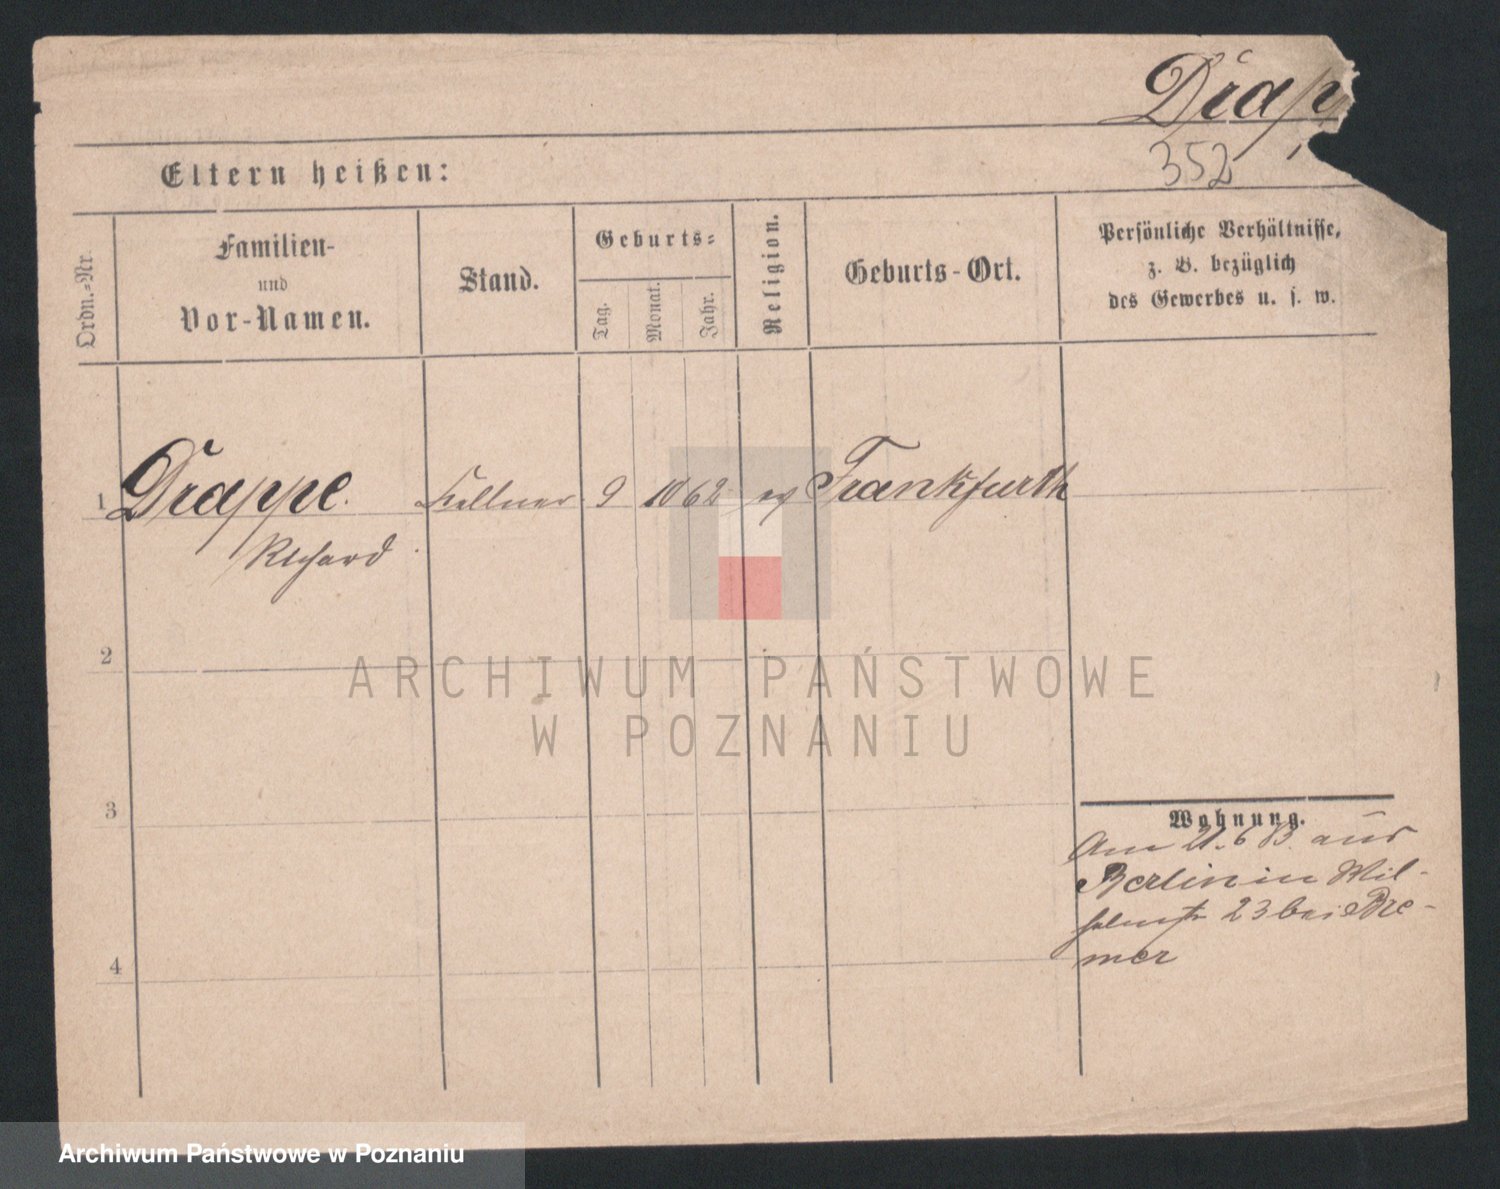 Drapp
352
Eltern heißen:
Ordn.-Nr.
Familien-
und
Vor-Namen.
Stand.
Geburts-
Tag.
Monat.
Jahr.
Religion.
Geburts-Ort.
Persönliche Verhältnisse,
z. B. bezüglich
des Gewerbes u. s. w.
1 Drappe. Kellner 9 10 62 ev Frankfurth
Richard
2
3
4
Wohnung.
Am 21.6 83 aus
Berlin in Wil-
helmstr 23 bei Bre-
mer
ARCHIWUM PAŃSTWOWE
W POZNANIU
Archiwum Państwowe w Poznaniu